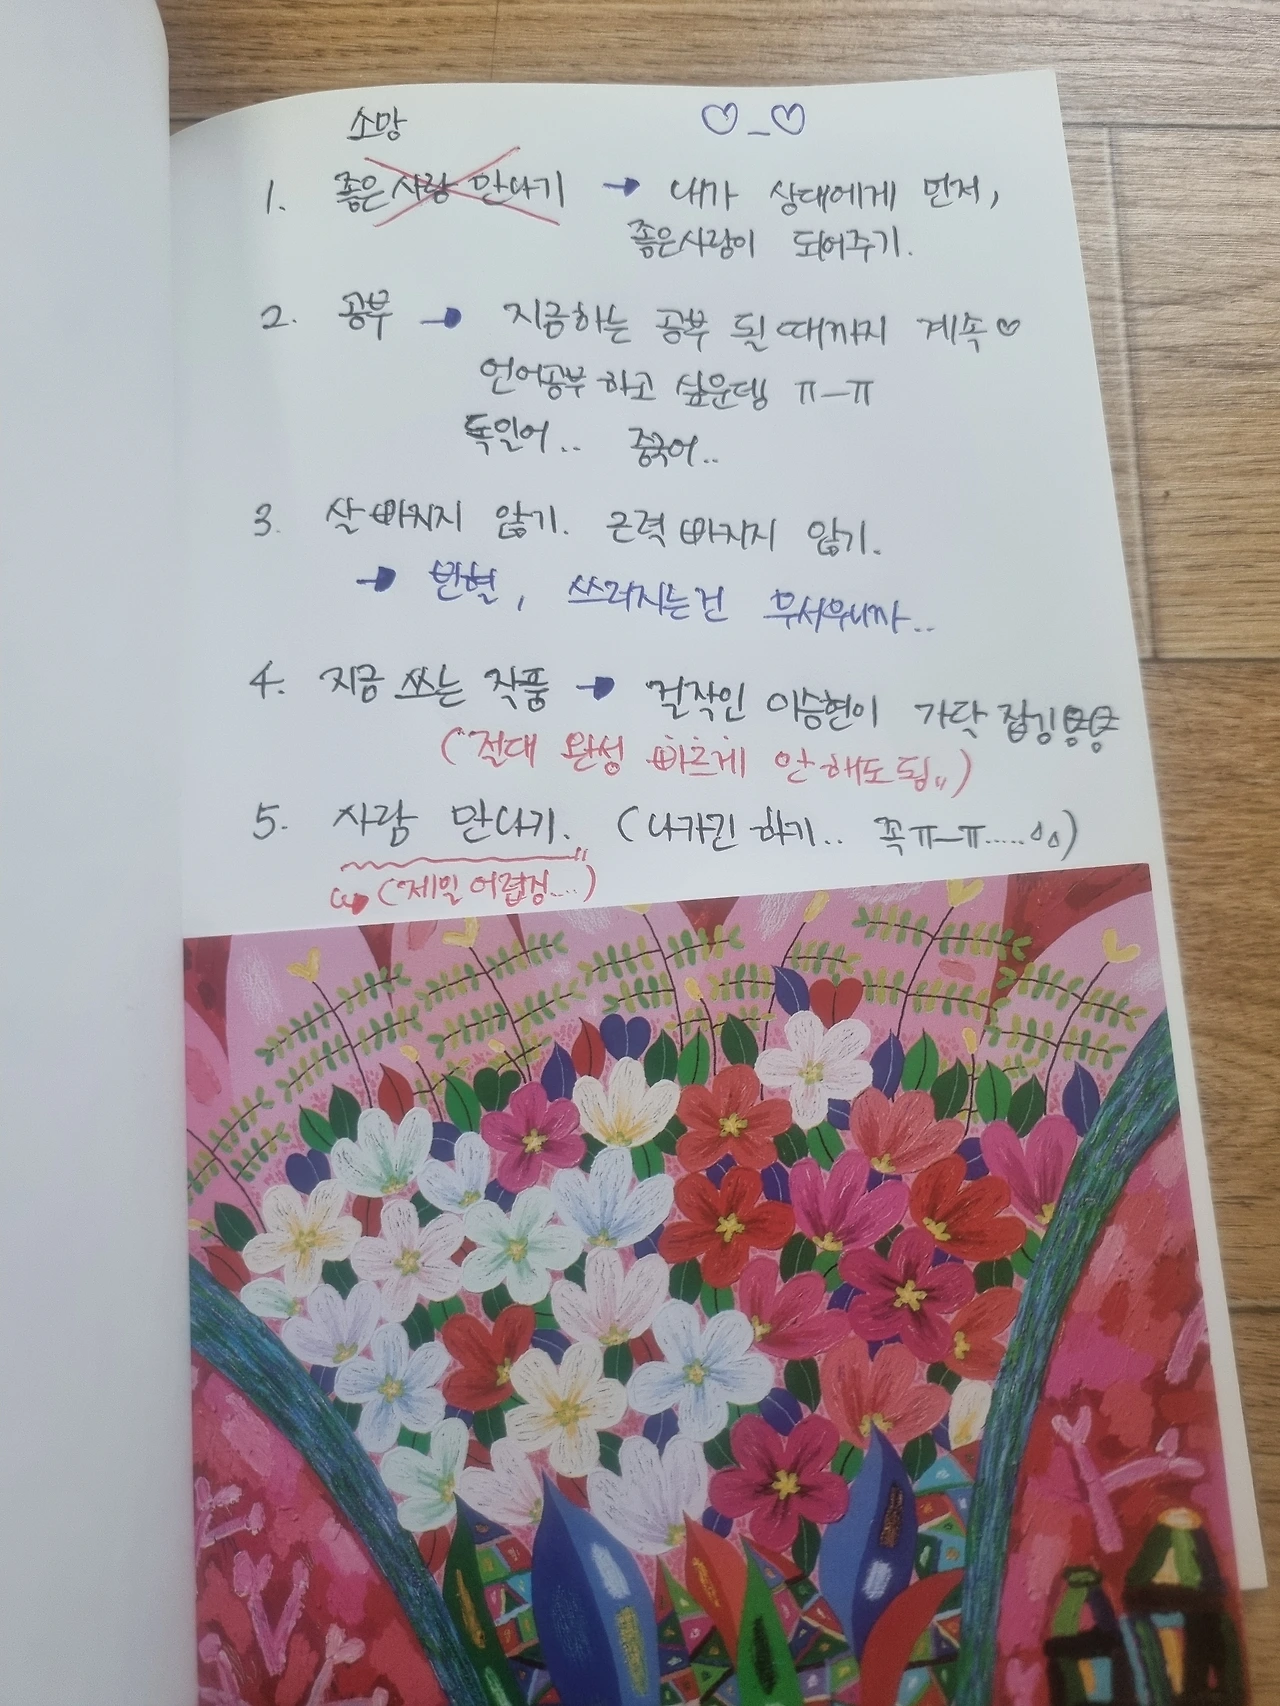 소망 ♡_♡
1. 좋은 사람 만나기 → 내가 상대에게 먼저,
좋은사람이 되어주기.
2. 공부 → 지금하는 공부 될때까지 계속♡
언어공부 하고 싶운뎅 ㅠ_ㅠ
독일어.. 중국어..
3. 살 빠지지 않기. 근력 빠지지 않기.
→ 빈혈, 쓰러지는건 무서우니까..
4. 지금 쓰는 작품 → 걸작인 이승현이 가닥 잡깅
(절대 완성 빠르게 안해도됨,,)
5. 사람 만나기. (나가긴 하기.. 꼭ㅠ_ㅠ.....)
↪ (제일 어렵징...)